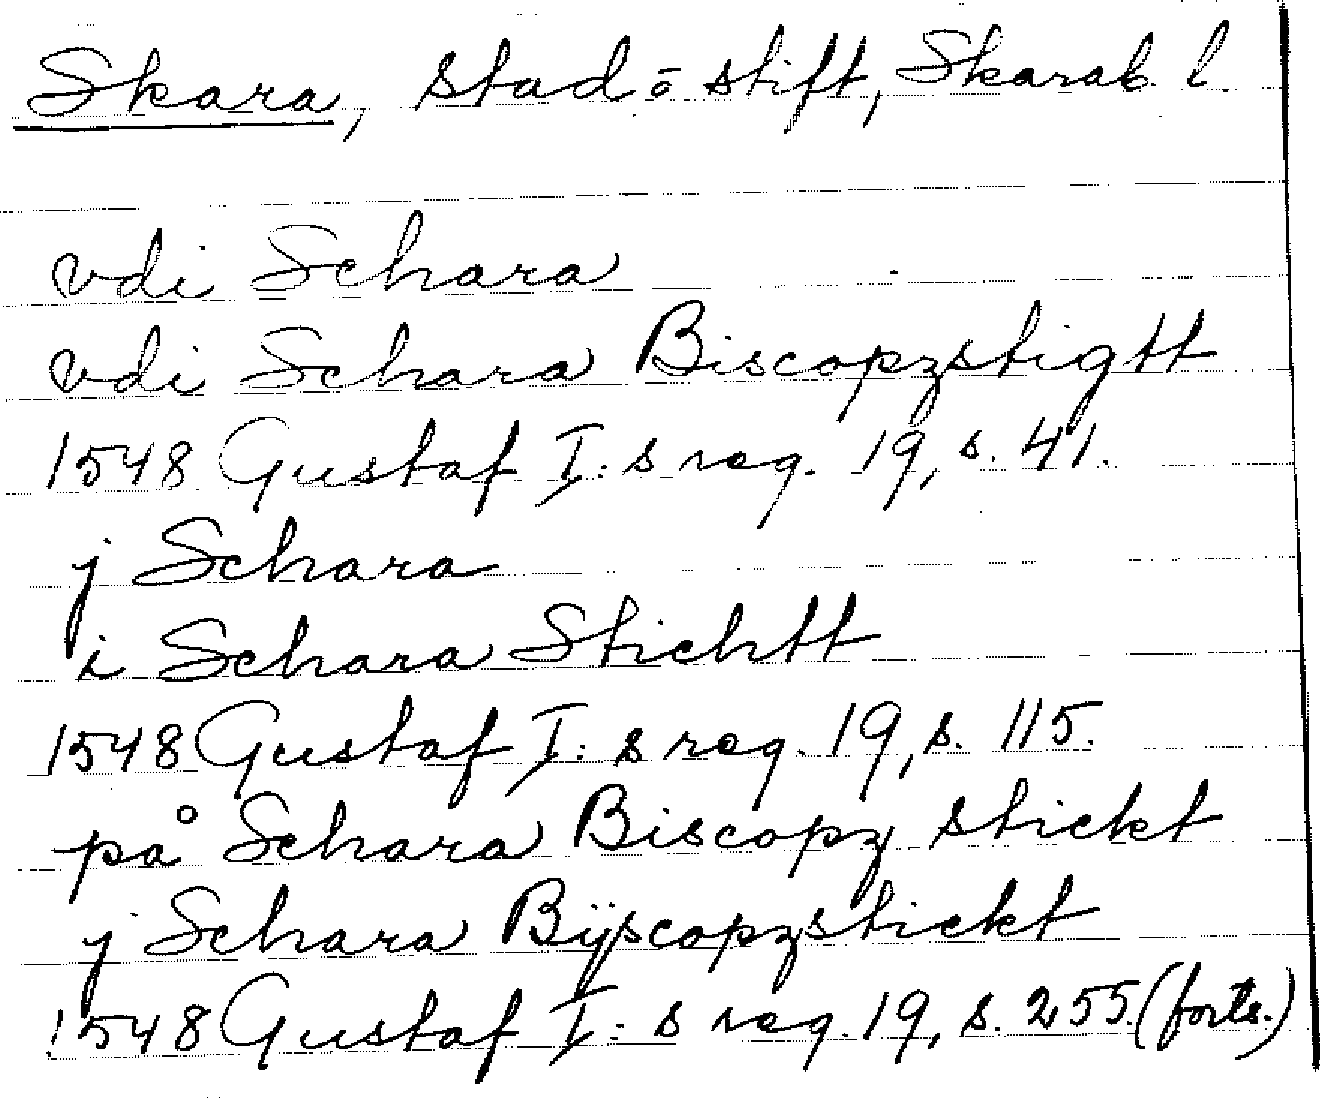 Skara, stad o stift, Skarab. l.
vdi Schara
vdi Schara Biscopzstigtt
1548 Gustaf I:s reg. 19, s. 41.
j Schara
i Schara Stichtt
1548 Gustaf I:s reg. 19, s. 115.
på Schara Biscopz stickt
j Schara Bÿscopzstickt
1548 Gustaf I:s reg. 19, s. 255. (forts.)